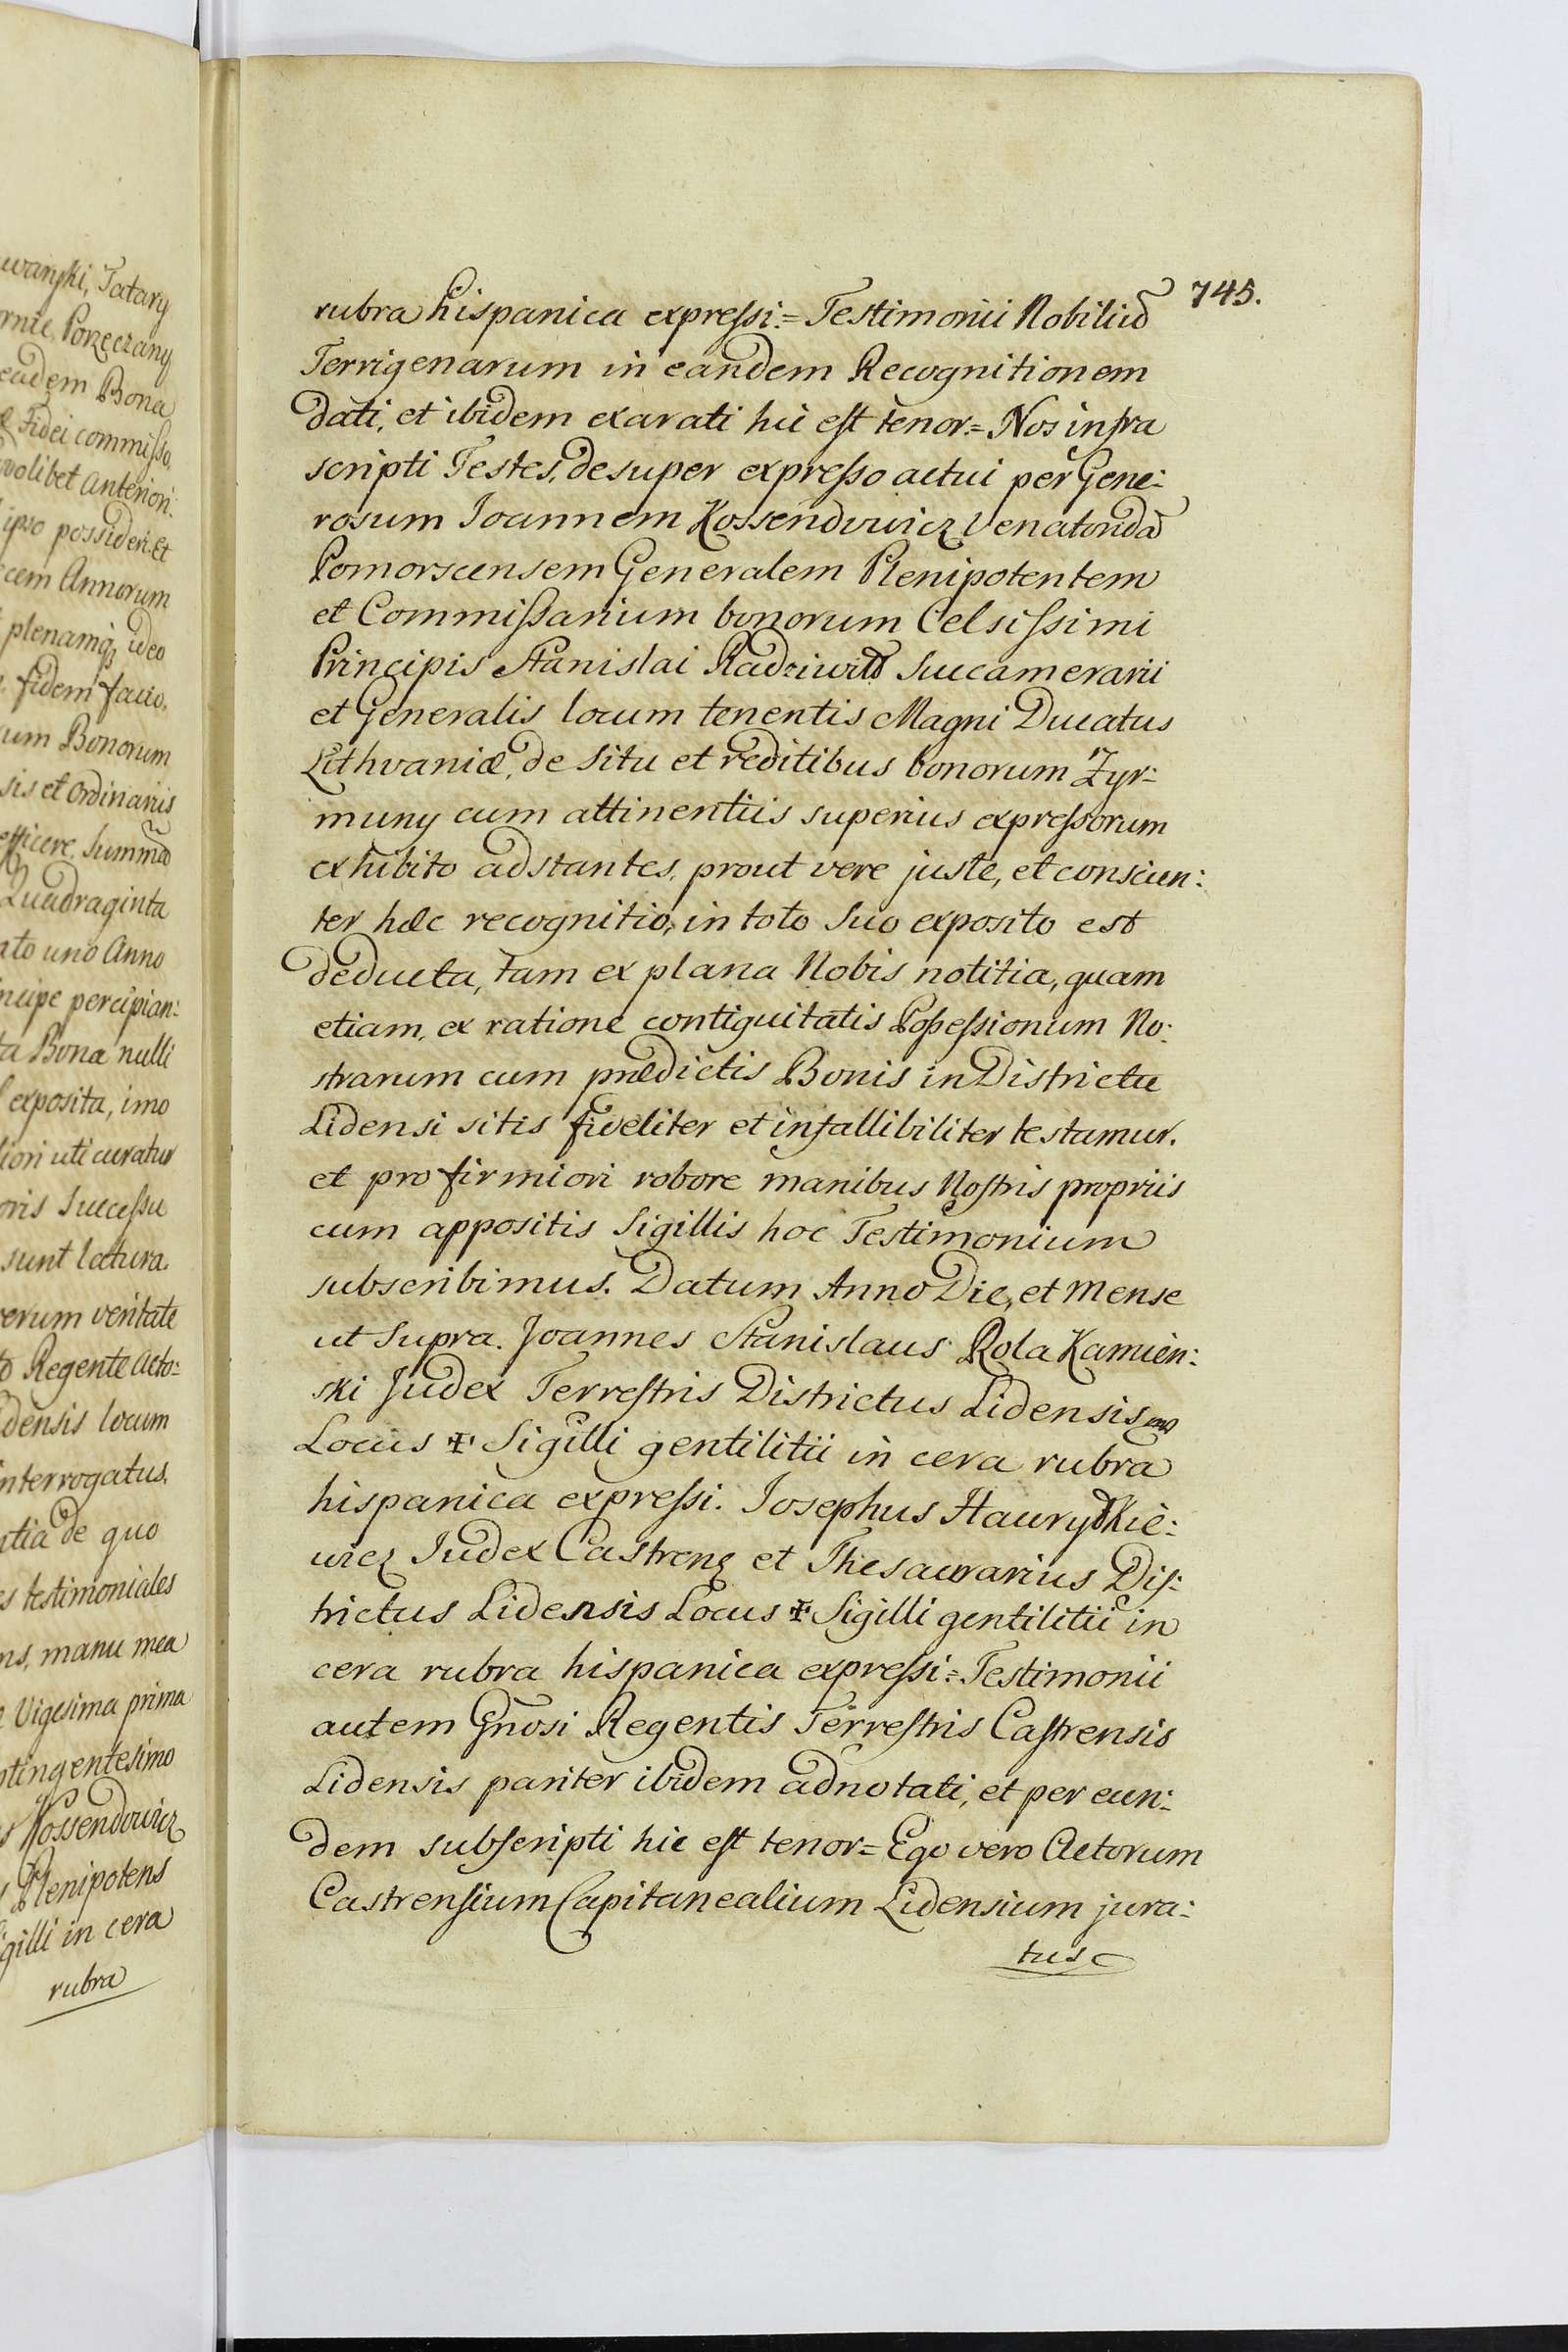 wanski, Tatary
rnie, Porzeczany
eadem Bona
Fidei commisso,
volibet anteriori:
ipso possideri. Et
cem Annorum
plenamq; ideo
fidem facio,
um Bonorum
sis et Ordinariis
efficere, Summa
Quadraginta
ato uno Anno
ncipe percipian:
ta Bona nulli
exposita, imo
liori uti curatur
oris Successu
sunt latura.
verum veritate
to Regente Acto:
densis locum
nterrogatus.
tia de quo
s testimoniales
ns, manu mea
Vigesima prima
ptingentesimo
s Kossendowicz
Plenipotens
igilli in cera
rubra
745.
rubra hispanica expressi. = Testimonii Nobiliu͠
Terrigenarum in eandem Recognitionem
dati, et ibidem exarati hic est tenor. = Nos infra
scripti Testes, desuper expresso actui per Gene:
rosum Joannem Kossendowicz Venatorida͠
Pomorscensem Generalem Plenipotentem
et Commissarium bonorum Celsissimi
Principis Stanislai Radziwiłł Succamerarii
et Generalis locum tenentis Magni Ducatus
Lithvaniæ, de situ et reditibus bonorum Zyr:
muny cum attinentiis superius expressorum
exhibito adstantes, prout vere juste, et conscien:
ter hæc recognitio, in toto suo exposito est
deducta, tam ex plana Nobis notitia, quam
etiam, ex ratione contiguitatis Possessionum No:
strarum cum prædictis Bonis in Districtu
Lidensi sitis fideliter et infallibiliter testamur.
et pro firmiori robore manibus Nostris propriis
cum appositis Sigillis hoc Testimonium
subscribimus. Datum Anno Die, et Mense
ut supra. Joannes Stanislaus Rola Kamien:
ski Judex Terrestris Districtus Lidensis
Locus ✠ Sigilli gentilitii in cera rubra
hispanica expressi. Josephus Hawryłkie:
wicz Judex Castrens et Thesaurarius Dis:
trictus Lidensis Locus ✠ Sigilli gentilitii in
cera rubra hispanica expressi = Testimonii
autem Gn̄osi Regentis Terrestris Castrensis
Lidensis pariter ibidem adnotati, et per eun:
dem subscripti hic est tenor = Ego vero Actorum
Castrensium Capitanealium Lidensium jura:
tus